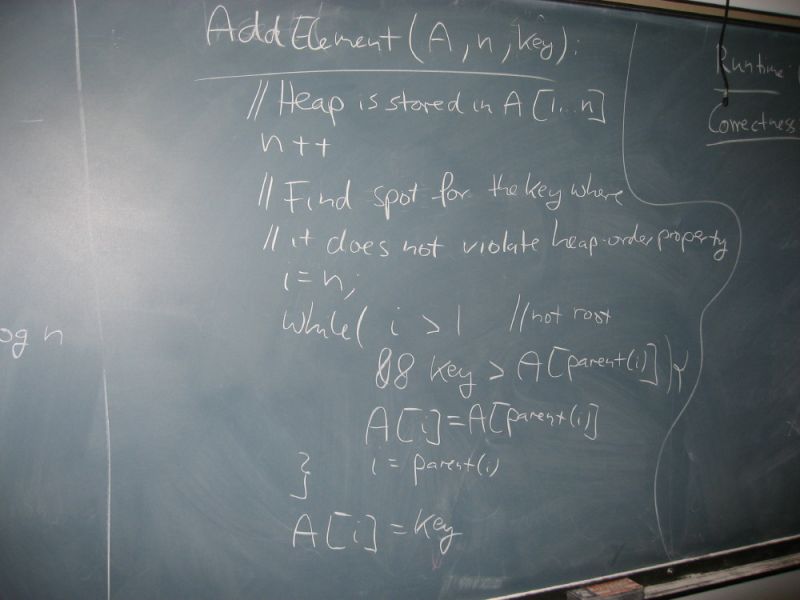 AddElement(A, n, key):
// Heap is stored in A[1...n]
n++
// Find spot for the key where
// it does not violate heap-order property
i = n;
while( i > 1 // not root
&& key > A[parent(i)]){
A[i] = A[parent(i)]
i = parent(i)
}
A[i] = key
og n
Runtime:
Correctness: